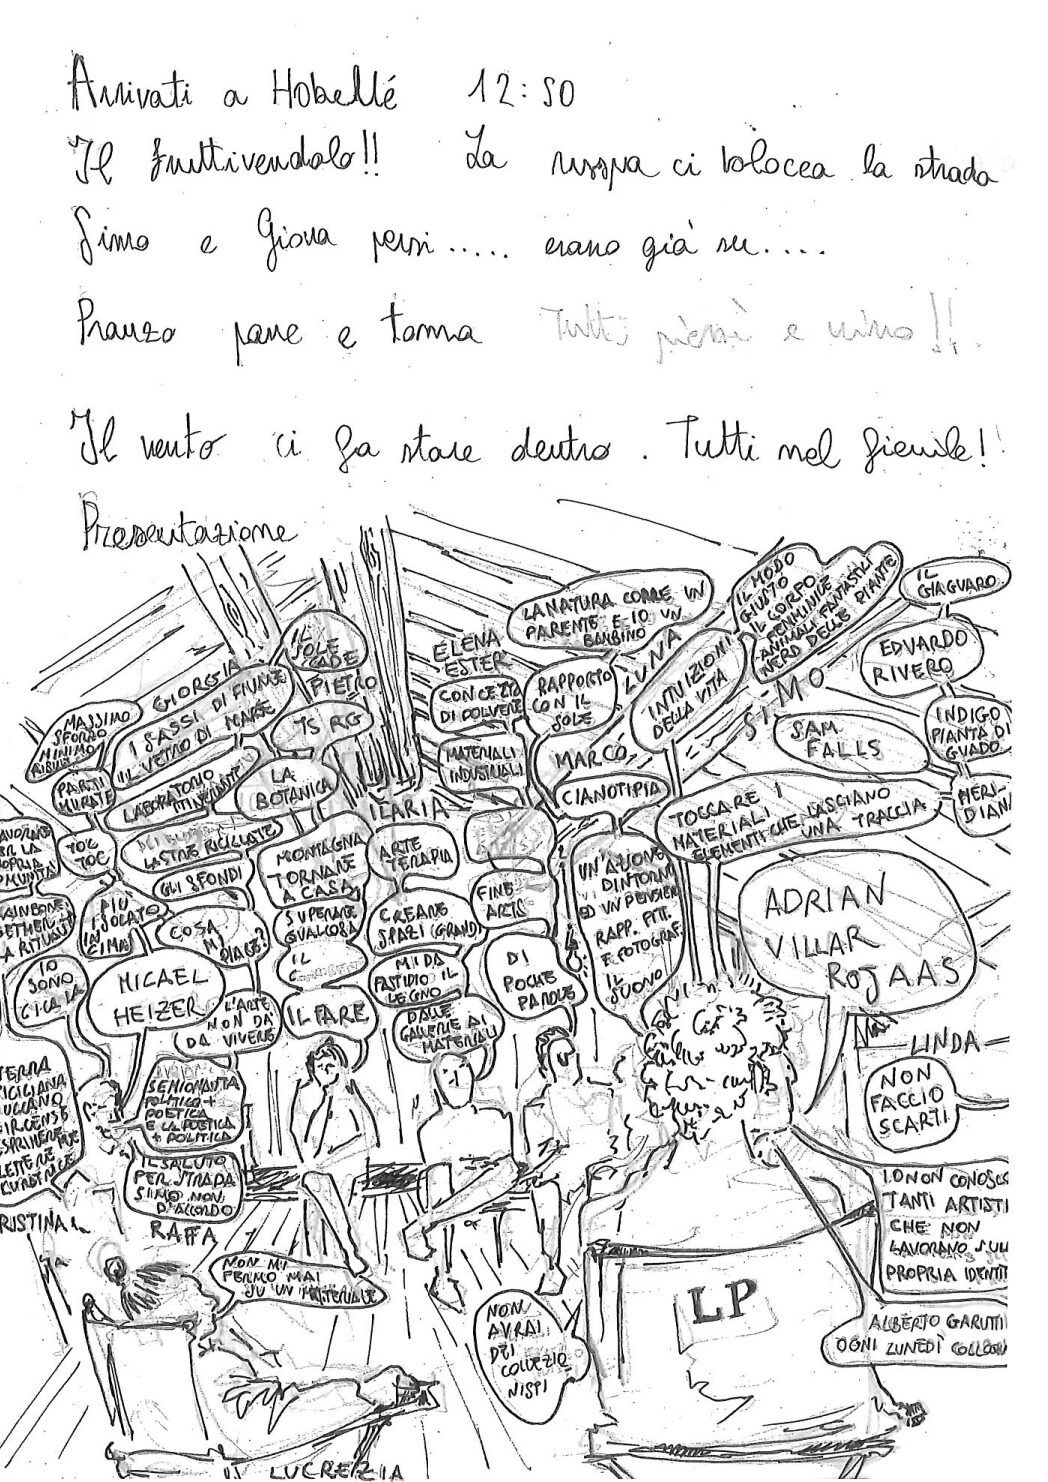 Arrivati a Hobellé 12:50
Il fruttivendolo!! La ruspa ci bolocca la strada
Simo e Giova persi..... erano già su....
Pranzo pane e toma Tutti e vino!!
Il vento ci fa stare dentro. Tutti nel fienile!
Presentazione
LA NATURA COME UN
PARENTE E IO UN
BAMBINO
IL MODO
GIUSTO
IL CORPO
FEMMINILE
ANIMALI FANTASTICI
NERD DELLE PIANTE
IL
GIAGUARO
EDUARDO
RIVERO
INDIGO
PIANTA DI
GUADO
MERI-
DIANI
SIMO
SAM
FALLS
LUNA
INTUIZIONI
DELLA VITA
TOCCARE I
MATERIALI
ELEMENTI CHE LASCIANO
UNA TRACCIA
ELENA
ESTER
CONCEZIO
DI POLVERE
MATERIALI
INDUSTRIALI
FINE
ARTS
DI
POCHE
PAROLE
RAPPORTO
CON IL
SOLE
MARCO
CIANOTIPIA
UN'AZIONE
DINTORNI
ED UN PENSIERO
RAPP. FITT.
E FOTOGRAF.
IL
SUONO
IL
SOLE
CADE
PIETRO
TS RG
LA
BOTANICA
MONTAGNA
TORNARE
CASA
SUPERARE
QUALCOSA
IL
IL FARE
ILARIA
ARTE
TERAPIA
CREARE
SPAZI (GRANDI)
MI DA
FASTIDIO IL
LEGNO
DALLE
GALLERIE AI
MATERIALI
GIORGIA
I SASSI DI FIUME
IL VETRO DI MARE
LABORATORIO
ITINERANTI
LASTRE RICICLATE
GLI SFONDI
COSA
MI
PIACE?
L'ARTE
NON DÀ
DA VIVERE
MASSIMO
SFORZO
MINIMO
PARTI
MURATE
TOC
TOC
PIÙ
ISOLATO
IN
CIMA
LAVORARE
PER LA
PROPRIA
COMUNITÀ
IO
SONO
CICALA
MICAEL
HEIZER
TERRA
SICILIANA
LUCANO
CIRCENSE
ESPRIMERE
RISTINA
SEMIONAUTA
POLITICA +
POETICA
E LA POETICA
+ POLITICA
IL SALUTO
PER STRADA
SIMO NON
D'ACCORDO
RAFFA
NON MI
FERMO MAI
SU UN MATERIALE
LUCREZIA
NON
AVRAI
DEI
COLLEZIO
NISTI
LP
ADRIAN
VILLAR
ROJAAS
LINDA
NON
FACCIO
SCARTI
IO NON CONOSCO
TANTI ARTISTI
CHE NON
LAVORANO SULL
PROPRIA IDENTIT
ALBERTO GARUTTI
OGNI LUNEDÌ COLLOQU